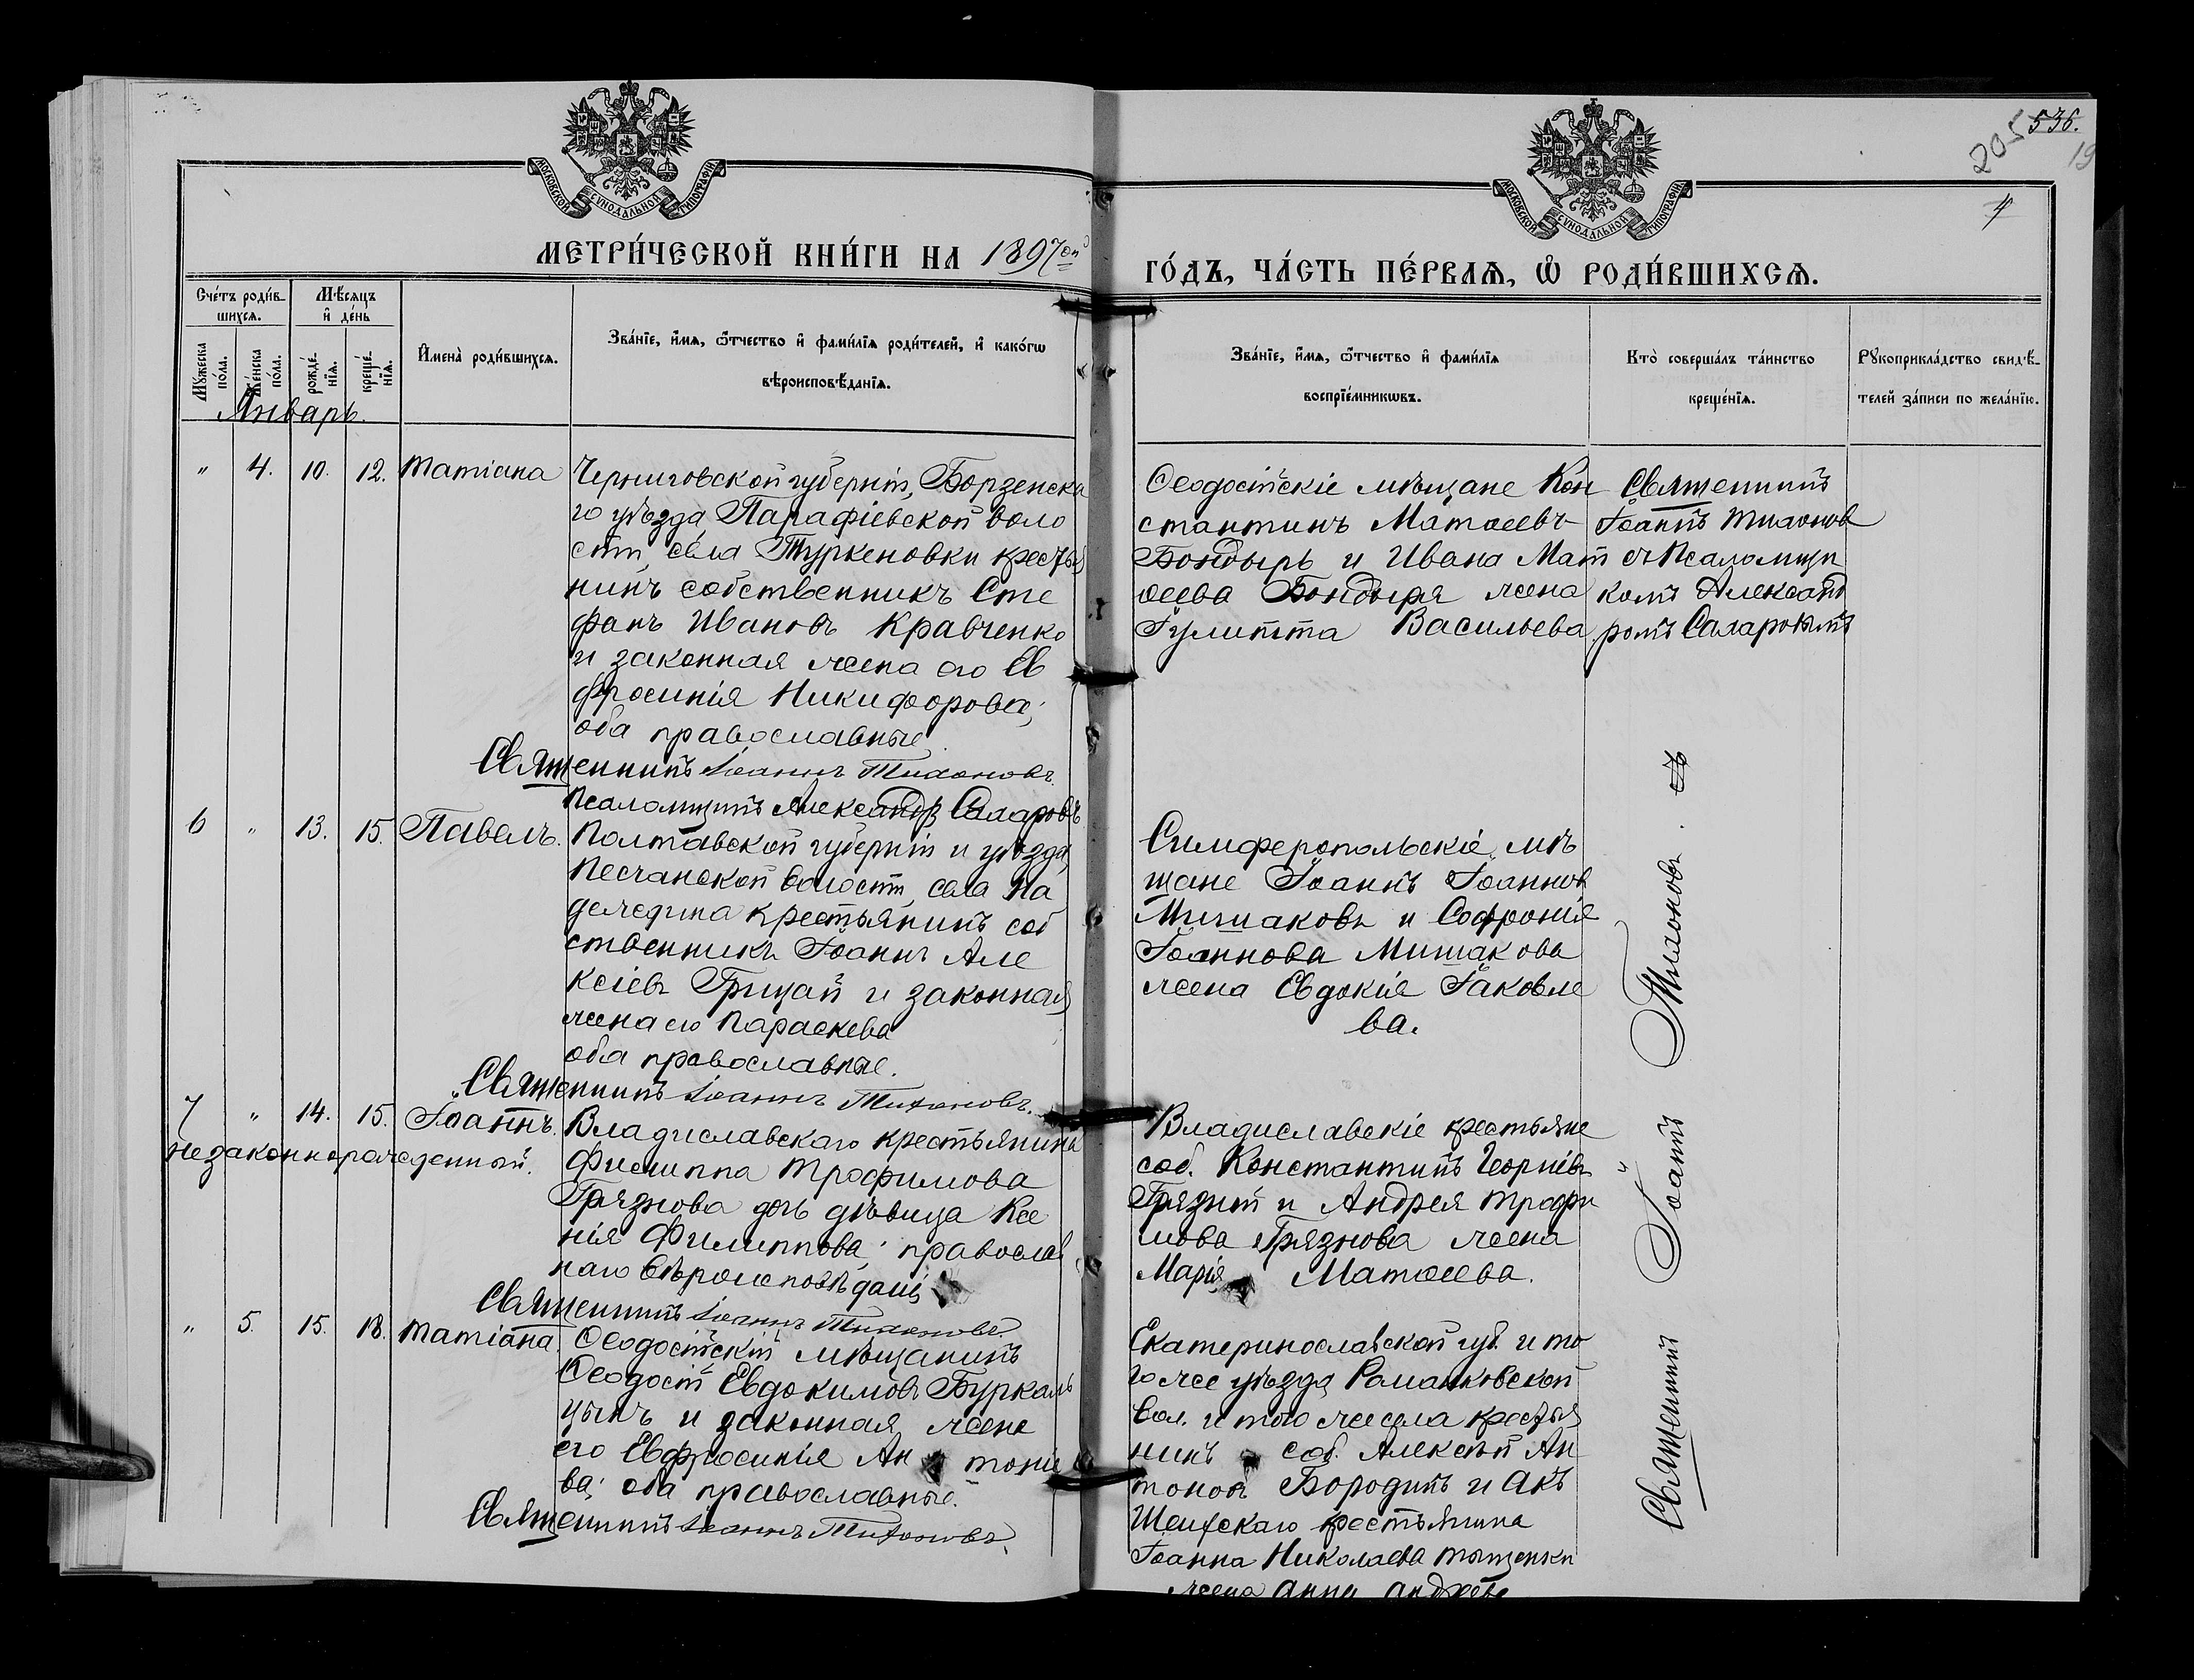 МОСКОВСКОЙ СѴНОДАЛЬНОЙ ТИПОГРАФІИ
МОСКОВСКОЙ СѴНОДАЛЬНОЙ ТИПОГРАФІИ
205 536.
19
4
МЕТРИ́ЧЕСКОЙ КНИ́ГИ НА 1897ой
ГО́ДЪ, ЧА́СТЬ ПЕ́РВАѦ, Ѽ РОДИ́ВШИХСѦ.
Сче́тъ роди́в-
шихсѧ.
Мѣ́сѧцъ
и҆ де́нь
Мꙋ́жеска
по́ла.
Же́нска
по́ла.
рожде́-
нїѧ.
креще́-
нїѧ.
И҆мена̀ роди́вшихсѧ.
Зва́нїе, и҆́мѧ, ѻ҆́тчество и҆ фами́лїѧ роди́телей, и҆ како́гѡ
вѣроисповѣ́данїѧ.
Зва́нїе, и҆́мѧ, ѻ҆́тчество и҆ фами́лїѧ
воспрїе́мникѡвъ.
Кто̀ соверша́лъ та́инство
креще́нїѧ.
Рꙋкоприкла́дство свидѣ́-
телей за́писи по жела́нїю.
Январь.
" 4. 10. 12. Татіана
Черниговской губерніи, Борзенска
го уѣзда, Парафіевской воло
сти, села Туркеновки крестья
нинъ собственникъ Сте
фанъ Ивановъ Кравченко
и законная жена его Ев
фросинія Никифорова;
оба православные.
Священникъ Іоаннъ Тихоновъ.
Псаломщикъ Александръ Сахаровъ
Ѳеодосійскіе мѣщане Кон
стантинъ Матѳеевъ
Бондырь и Ивана Мат
ѳеева Бондыря жена
Іулитта Васильева
Священникъ
Іоаннъ Тихонов
съ Псаломщи
комъ Александ
ромъ Сахаровымъ
6 " 13. 15. Павелъ.
Полтавской губерніи и уѣзда,
Песчанской волости, села На
дежедина крестьянинъ соб
ственникъ Іоаннъ Але
ксіевъ Грицай и законная
жена его Параскева
оба православные.
Священникъ Іоаннъ Тихоновъ.
Симферопольскіе мѣ
щане Іоаннъ Іоаннов
Мишаковъ и Софронія
Іоаннова Мишакова
жена Евдокія Іаковле
ва.
7 " 14. 15. Іоаннъ.
незаконнорожденный.
Владиславскаго крестьянина
Филиппа Трофимова
Грязнова дочь дѣвица Ксе
нія Филиппова; православ
наго вѣроисповѣданія
Священникъ Іоаннъ Тихоновъ.
Владиславскіе крестьяне
соб. Константинъ Георгіевъ
Грязнй и Андрея Трофи
мова Грязнова жена
Марія Матѳеева.
" 5. 15. 18. Татіана.
Ѳеодосійскій мѣщанинъ
Ѳеодосій Евдокимовъ Буркаль
цынъ и законная жена
его Евфросинія Ан тоніе
ва; оба православные.
Священникъ Іоаннъ Тихоновъ.
Екатеринославской губ. и то
го же уѣзда Романковской
вол. и того же села крестья
нинъ соб. Алексѣй Ан
тоновъ Бородинъ и Акъ
Шеихскаго крестьянина
Іоанна Николаева Тыщенки
жена Анна Андреева
Священникъ Іоаннъ Тихоновъ. съ